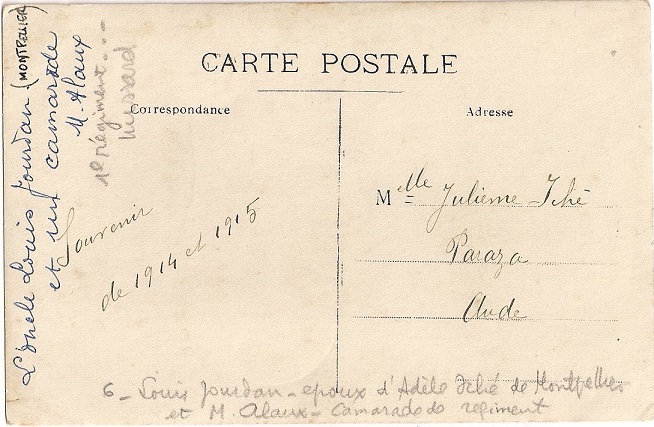 CARTE POSTALE
Correspondance
Adresse
L'oncle Louis Jourdan (MONTPELLIER)
et un camarade
M. Alaux
1e régiment...
hussard
Souvenir
de 1914 et 1915
Melle Julienne Iché
Paraza
Aude
6 - Louis Jourdan - epoux d'Adèle Iché de Montpellier
et M. Alaux - Camarade de regiment